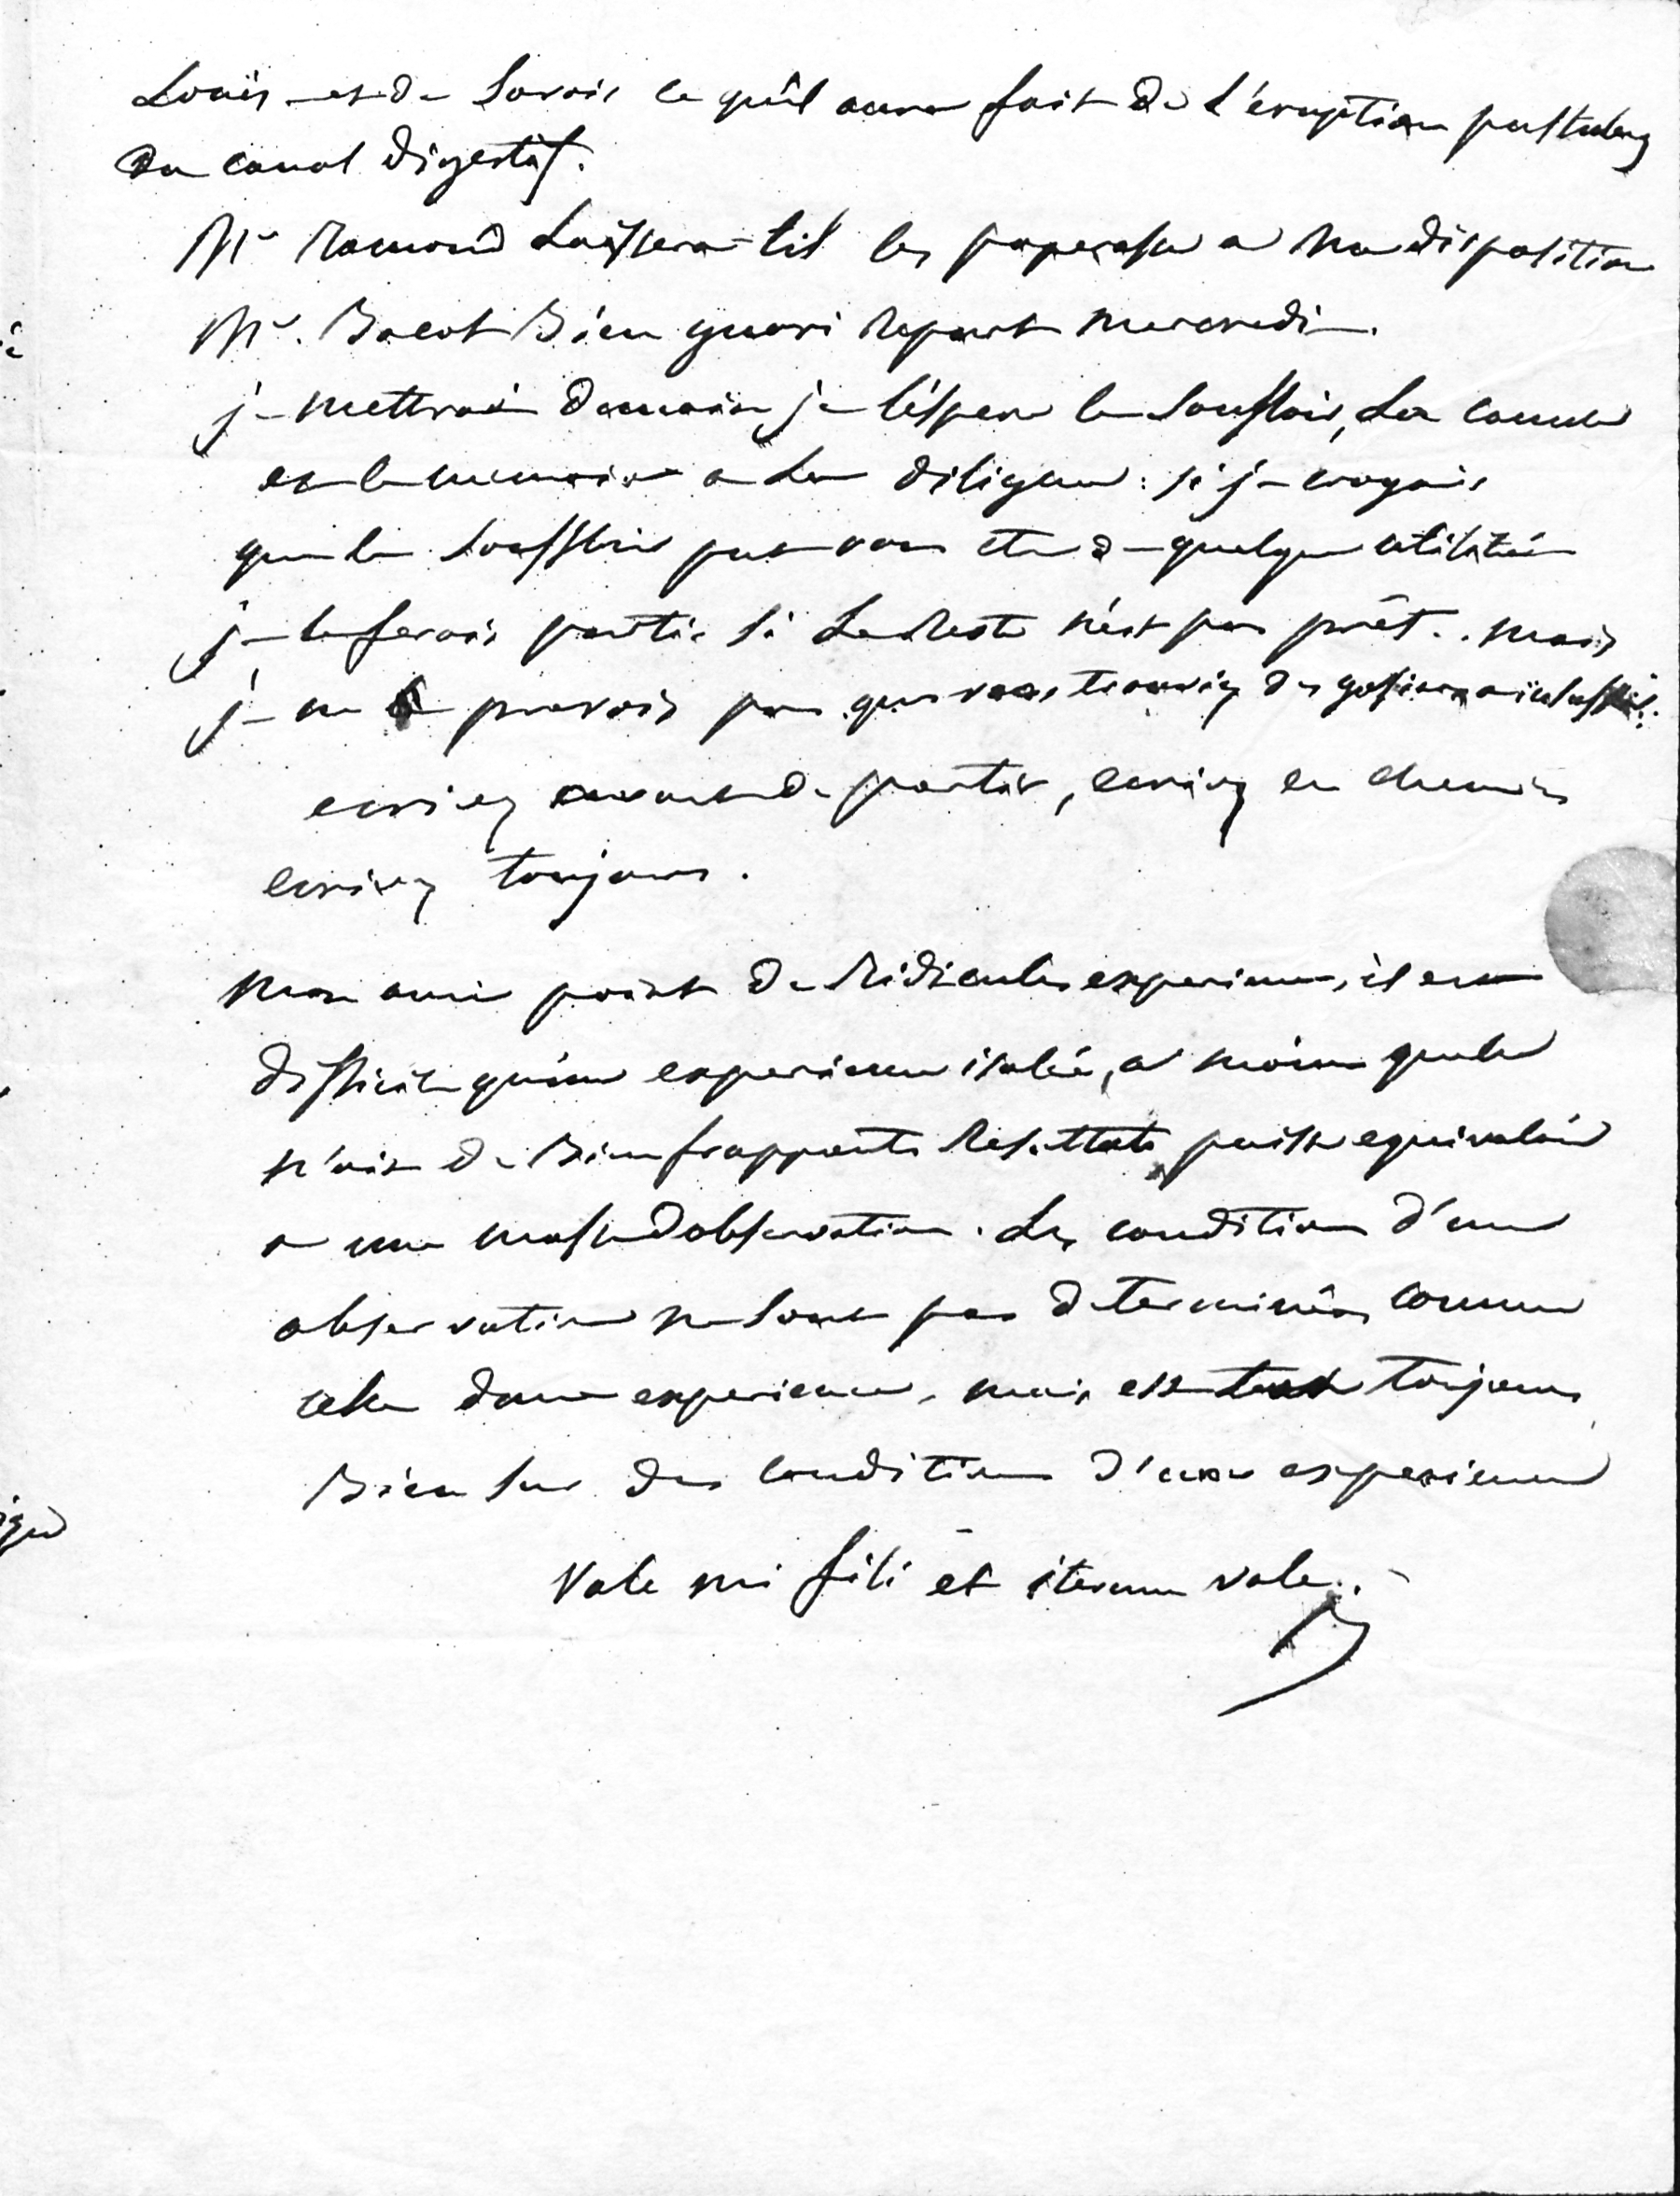 Louis et de savoir ce qu'il aura fait de l'eruption pustuleuse
du canal digestif.
Mr Ramond laissera-til les paperasses a ma disposition
Mr. Bacot Bien gueri repart mercredi.
je mettrai demain je l'éspere le souffloir, la canule
et le memoire a la diligence : si je croyais
que le souffloir put vous etre de quelque utilité
je le ferais partir si le reste n'est pas prêt.. mais
je ne prevois pas que vous trouviez des
ecrivez avant de partir, ecrivez en chemin
ecrivez toujours.
mon ami point de ridicules experiences, il est
difficile qu'une experience isolée, a moins qu'elle
n'ait de Bien frappants resultats puisse equivaloir
a une masse d'observations. Les conditions d'une
observation ne sont pas determinées comme
celles d'une experience, mais est toujours
Bien sur des conditions d'une experience
Vale mi fili et iterum vale..